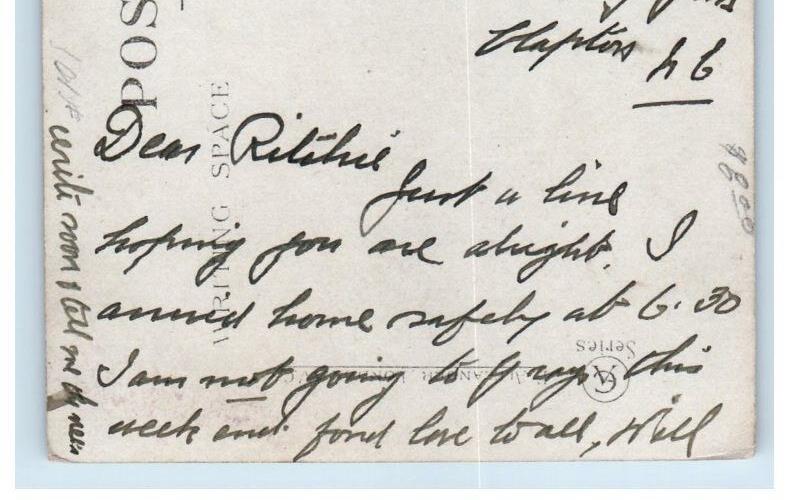 Clapton N 6
Dear Ritchie
Just a line
hoping you are alright. I
arrived home safely at 6.30
I am not going to Grays this
week end. fond love to all, Will
write soon & tell me the news
POS
WRITING SPACE
Series